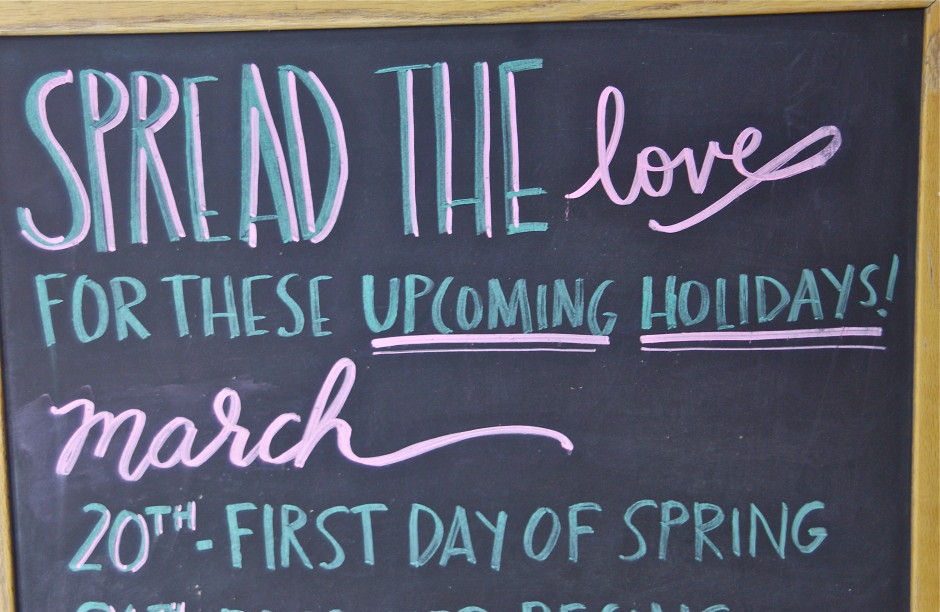 SPREAD THE love
FOR THESE UPCOMING HOLIDAYS!
march
20TH - FIRST DAY OF SPRING